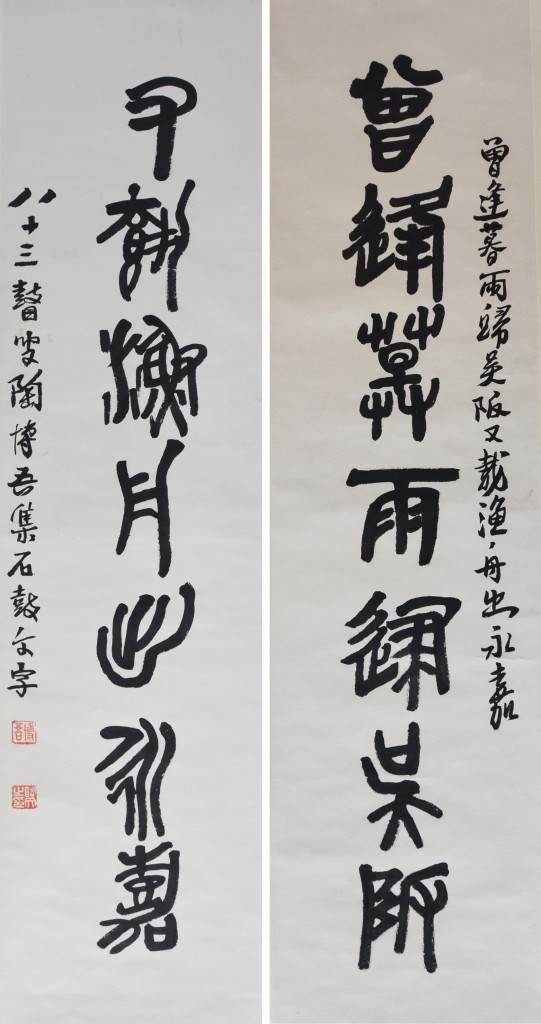 曾逢暮雨歸吳阪又載漁舟出永嘉
曾逢莫雨歸吳阪
又載漁舟出永嘉
八十三瞽叟陶博吾集石鼓文字
博吾